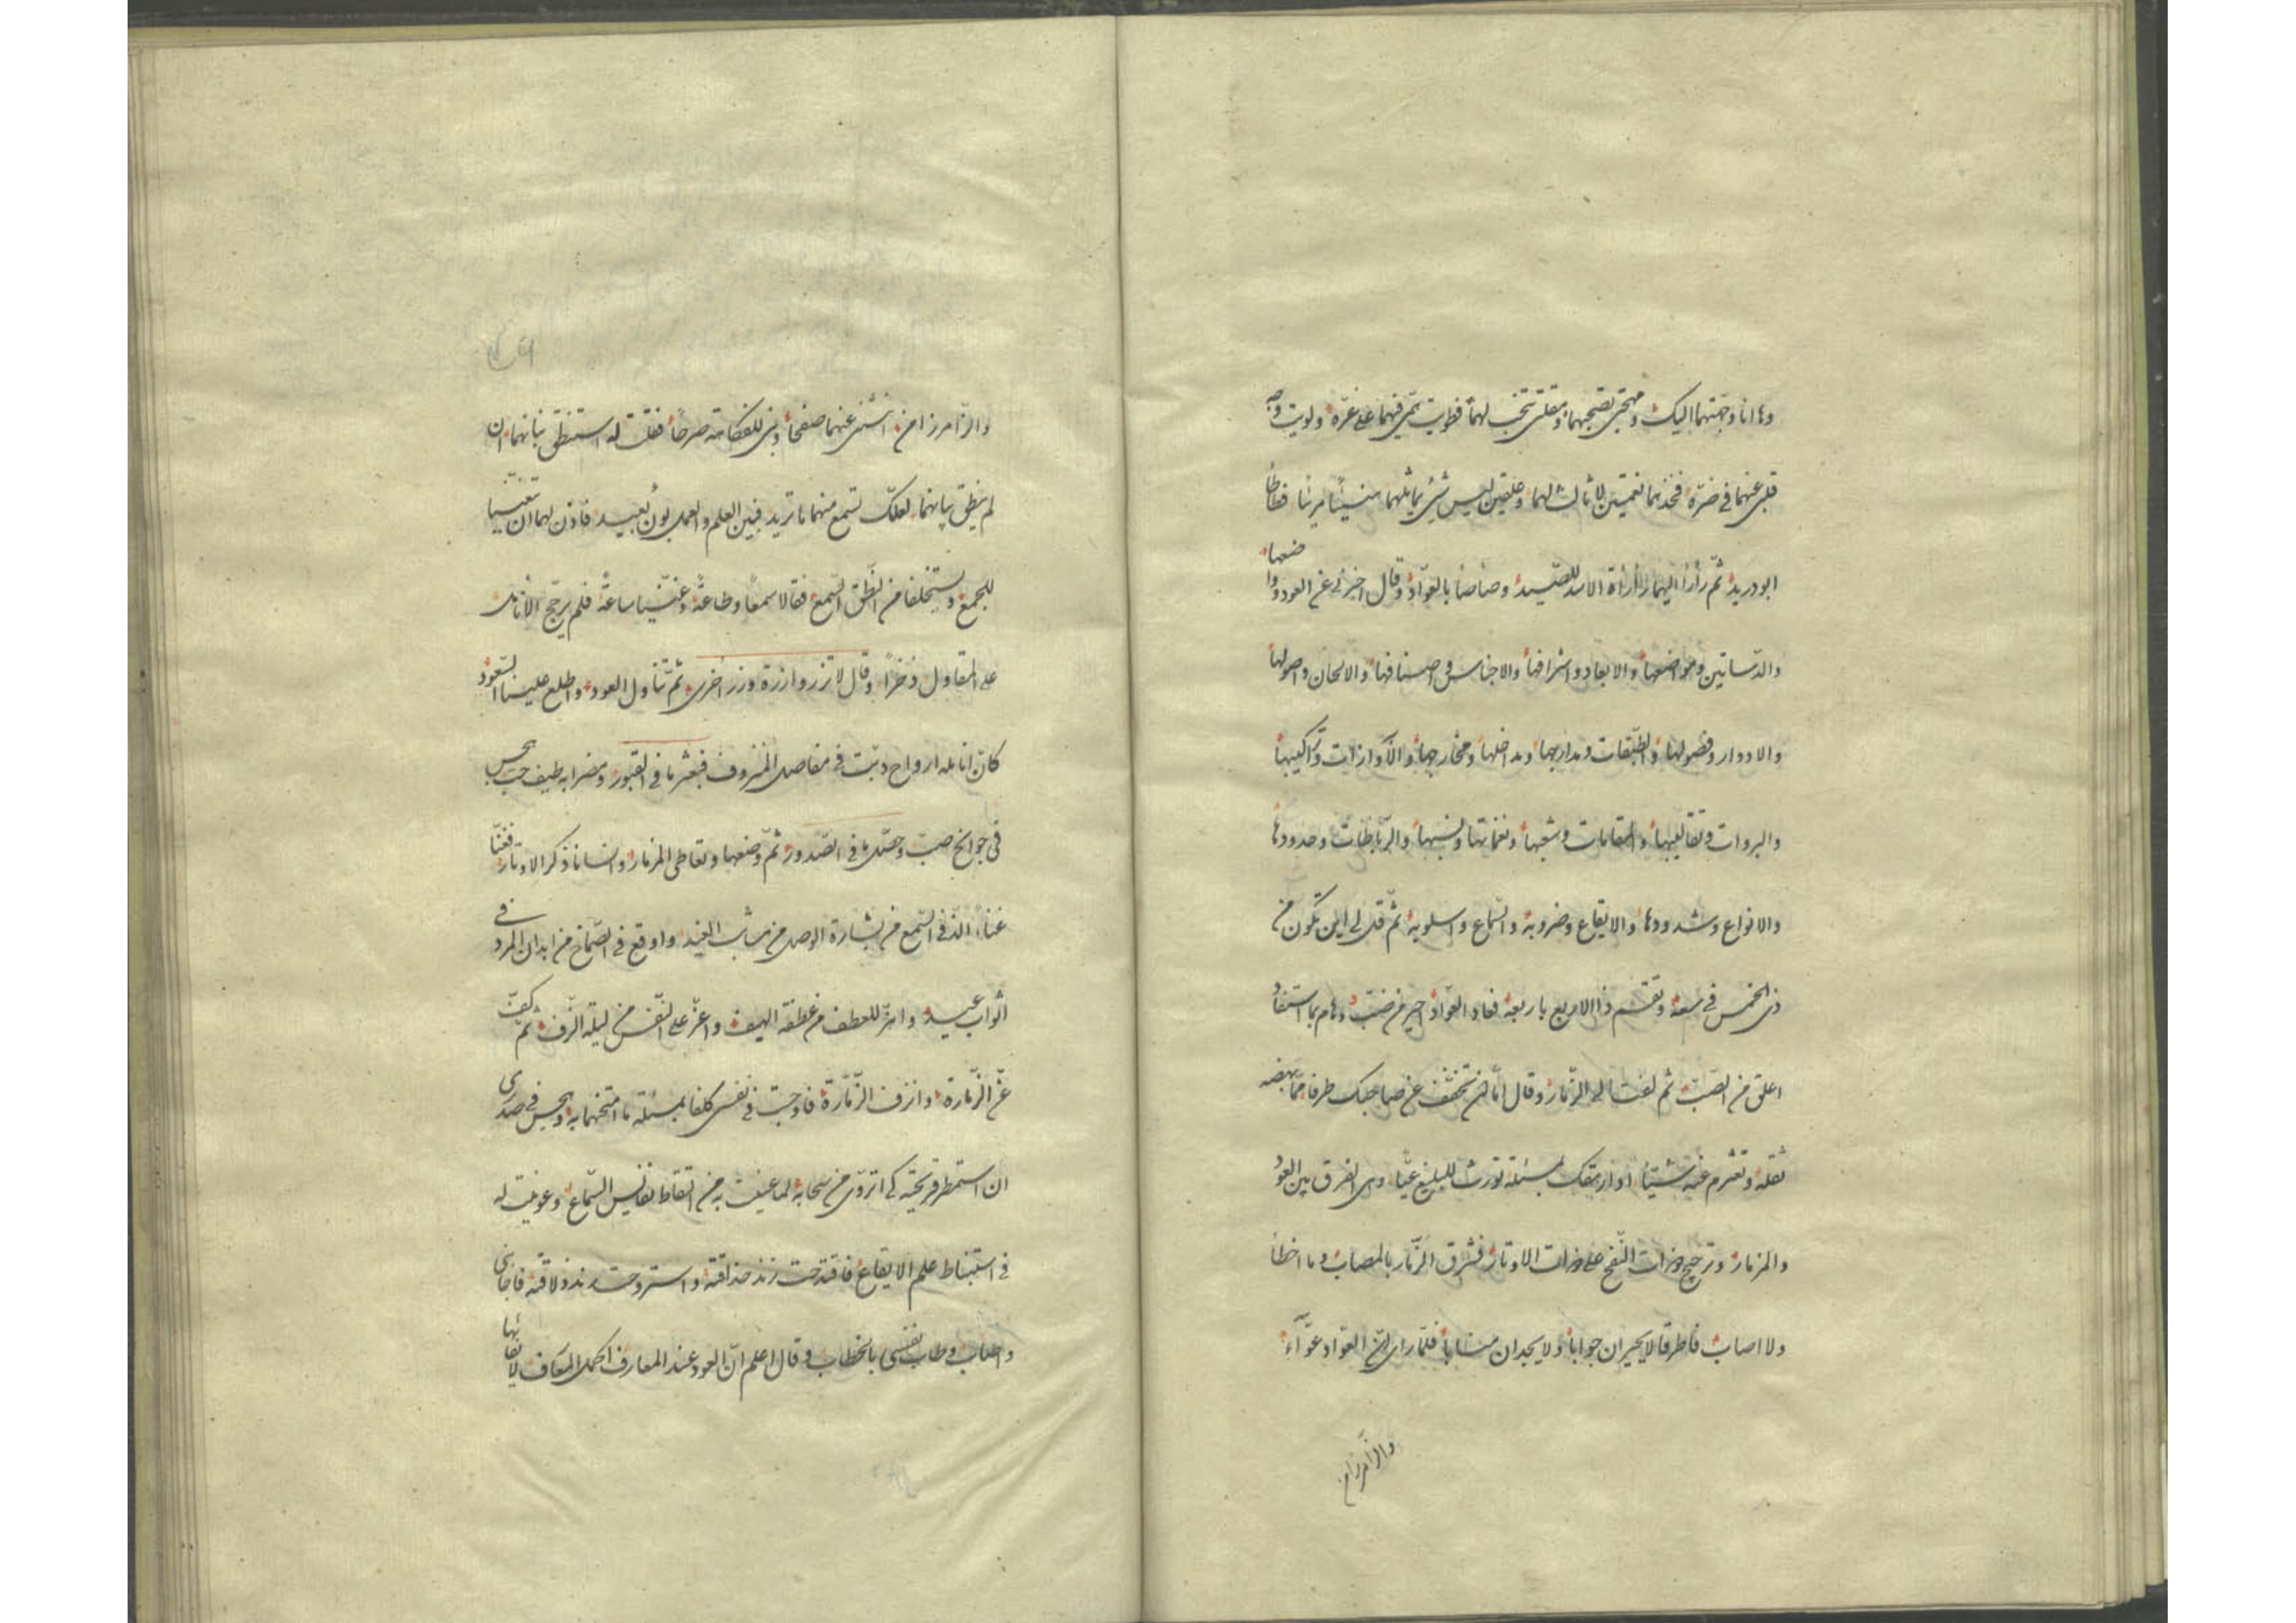 وها انا وجّهتهما اليك ومهجتى بصحبهما ومقلتى تنتحب لهما فطويت نمرقتهما على غرّه ولويت وجه
قلبى عنهما فى ضرّه فخذهما نغمتين لا ثالث لهما وعلقين ليس شئ يماثلهما هنيئا مريئا فطاطأ
ابو دريد ثم رأرأ اليهما رأرأة الاسد للصّيد وصأصأ بالعوّاد وقال اخبرنى عن العود واوضعها
والدّساتين ومواضعها والابعاد واشرافها والاجناس واصنافها والالحان واصولها
والادوار وفصولها والطّبقات ومدارجها ومداخلها ومخارجها والآوازات وتراكيبها
والبروات وتقاليبها والمقامات وشعبها ونغماتها ونسبها والرّباطات وحدودها
والانواع وشدودها والايقاع وضروبه والسّماع واسلوبه ثم قل لى اين تكون من
ذى الخمس فى سعة وتقسم ذا الاربع باربعة فعاد العوّاد احير من ضبّ وهام بما استفاد
اعلق من الصّبّ ثم لفت الى الزّمّار وقال امّا ان تخفّف عن صاحبك طرفا ممّا بهضه
ثقله وتغرم عنه شيئا او ازهقك بمسئلة تورث للبليغ عيّا وهى الفرق بين العود
والمزمار وترجيح حزات النّفخ على حزات الاوتار فشرق الزّمّار بالمصاب وما اخطأ
ولا اصاب فاطرقا لا يحيران جوابا ولا يجدان متابا فلمّا راى انّ العوّاد عوّاء
والزّامر زامن
والزّامر زامن انثنى عنهما صفحا وبنى للفكاهة صرحا فقلت له استنطق بنانهما ان
لم ينطق بيانهما لعلّك تسمع منهما ما تريد فبين العلم والعمل بون بعيد فاذن لهما ان تغنّيا
للجمع ويستخلفا من النّطق السّمع فقالا سمعا وطاعة وغنّيا ساعة فلم يرجّح الانامل
على المقاول ذخرا وقال لا تزر وازرة وزر اخرى ثم تناول العود واطلع علينا السّعود
كانّ انامله ارواح دبّت فى مفاصل المنزوف فبعثر ما فى القبور ومضرابه طيف حبّ يجس
فى جوانح صبّ وحصّل ما فى الصّدور ثم وضعها وتعاطى المزمار وانسانا ذكر الاوتار فغنّا
غناء الذّ فى السّمع من بشارة الوصل من مراشف الغيد واوقع فى الصّماخ من ابدان المرد فى
اثواب عيد واهزّ للعطف من عطفة الهيف واعزّ على النّفس من ليلة الزّف ثم كفّ
عن الزّمارة وانزف الزّمّارة فاوجبت فى نفسى كلفا بمسئلة ما امتحنهما به وهجس فى صدرى
ان استمطر قريحته كى اتروّى من سحابه لما عنيت به من التقاط نفايس السّماع وعوينت له
فى استنباط علم الايقاع فاقتدحت زند حذاقته واستروحت رند ذلاقته فاجابنى
واصاب وطاب نفسى بالخطاب وقال اعلم انّ العود عند المعارف اكمل المعازف لابقائها